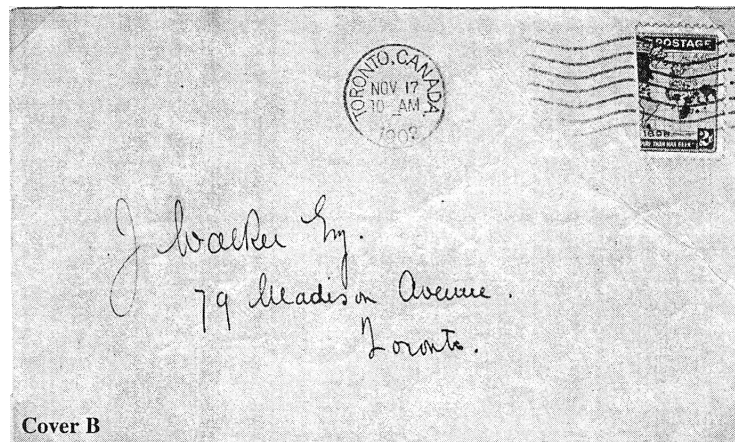 TORONTO, CANADA.
NOV 17
10 AM
POSTAGE
1898
THAN HAS BEEN
2
J Walker Esq.
79 Madison Avenue.
Toronto.
Cover B